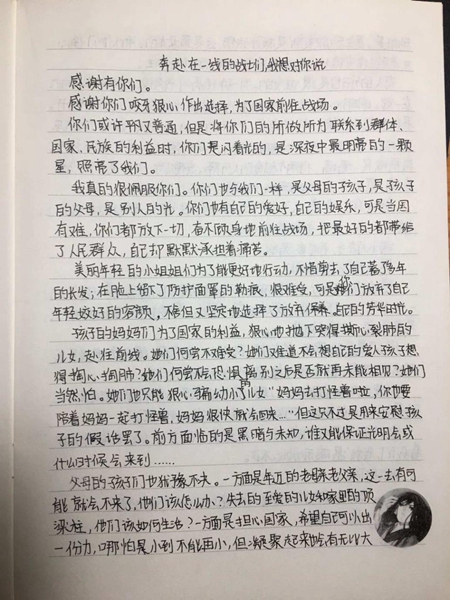 奔赴在一线的战士们,我想对你说
感谢有你们。
感谢你们咬牙狠心作出选择,为了国家前往战场。
你们或许平凡又普通,但是将你们的所做所为联系到群体、
国家、民族的利益时,你们是闪着光的,是深夜中最明蒂的一颗
星,照亮了我们。
我真的很佩服你们。你们也与我们一样,是父母的孩子,是孩子
的父母,是别人的光。你们也有自己的爱好,自己的娱乐,可是当国
有难,你们都放下一切,奋不顾身地前往战场,把最好的都带给
了人民群众,自己却默默承担着痛苦。
美丽年轻的小姐姐们为了能更好地行动,不惜剪去了自己蓄多年
的长发;在脸上留下了防护面罩的勒痕,很难受,可是你们放弃了自己
年轻姣好的容颜,不悔但又坚定地选择了放弃 自己的芳华时光。
孩子的妈妈们为了国家的利益,狠心地抛下哭得撕心裂肺的
儿女,赴往前线。她们何尝不难受?她们又难道不会想自己的爱人孩子想
得掏心掏肺?她们何尝不会恐惧离别之后是否就再无能相见?她们
当然怕。她们也只能狠心骗幼小的儿女“妈妈去打怪兽啦,你也要
陪着妈妈一起打怪兽,妈妈很快就会回来…”但这只不过是用来安慰孩
子的假话罢了。前方面临的是黑暗与未知,谁又能保证光明会或
什么时候会来到……
父母的孩子们也犹豫不决。一方面是年迈的老母老父亲,这一去有可
能就会不来了,他们该怎么办?失去的至爱的儿女和家里的顶
梁柱,他们该如何生活?一方面是担心国家,希望自己可以出
一份力,哪怕是小到不能再小,但凝聚起来啥有无比大